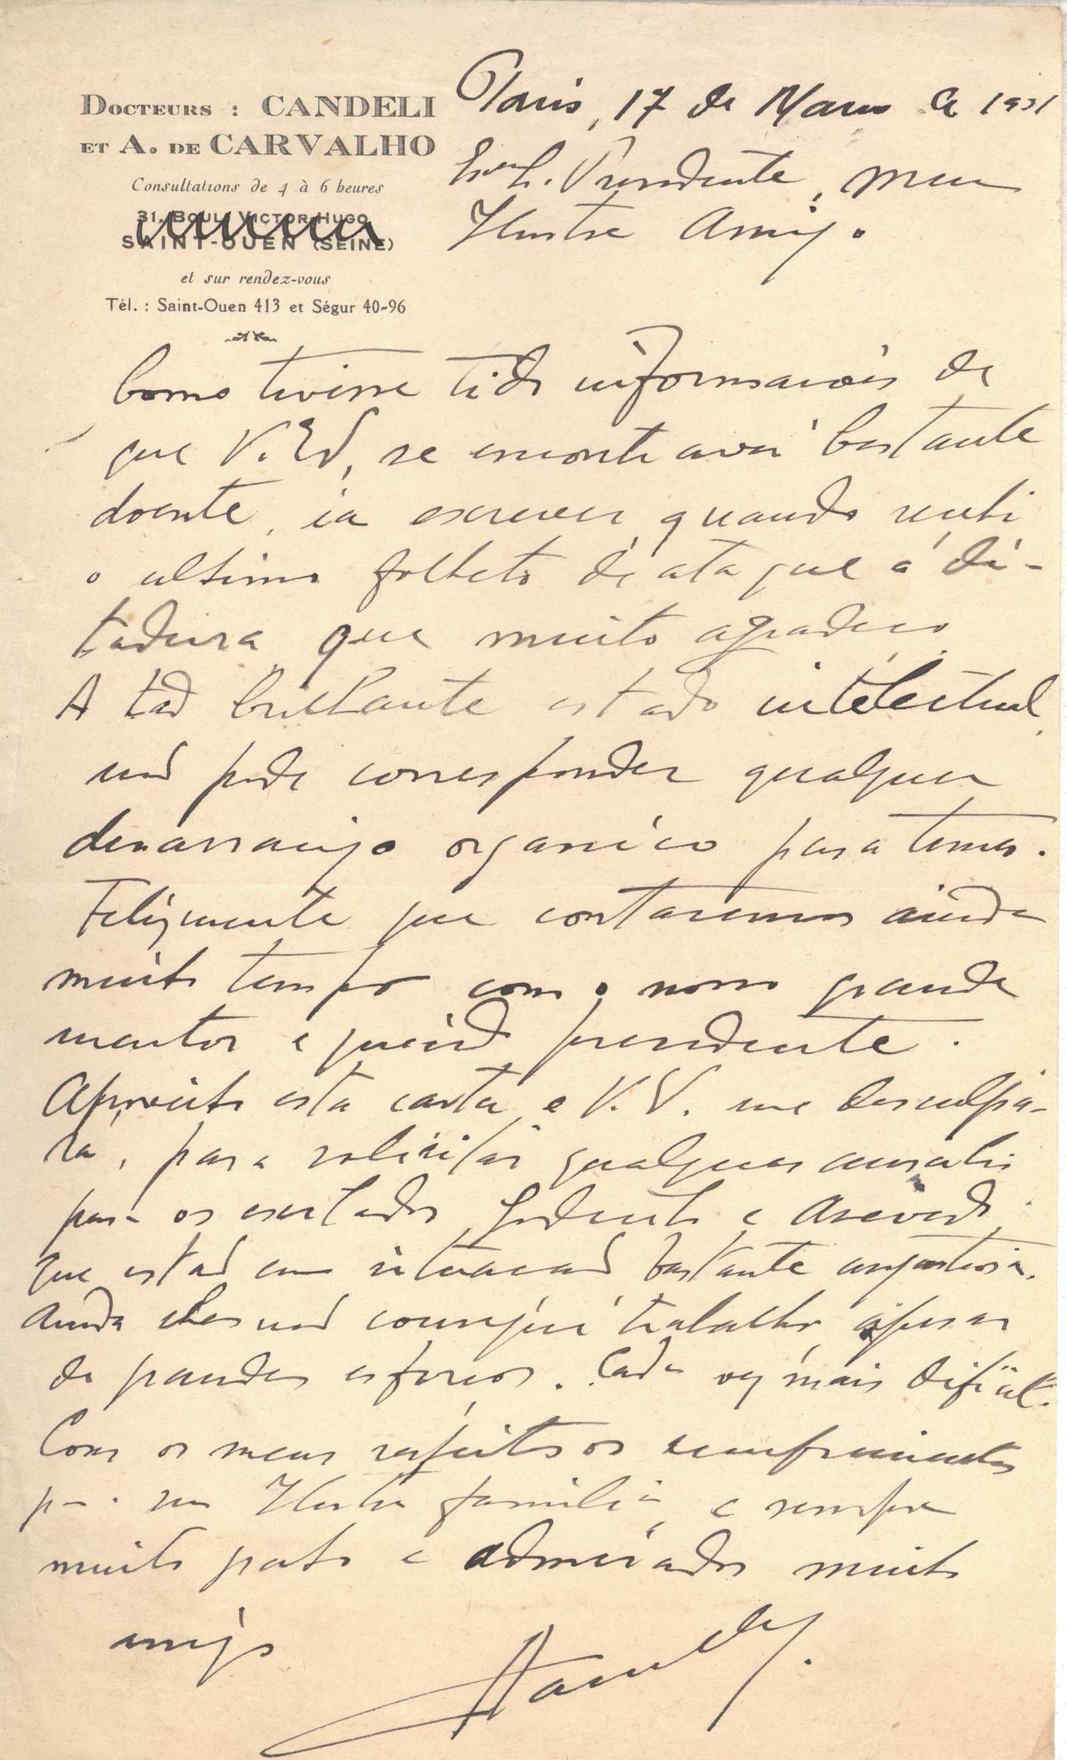 DOCTEURS : CANDELI
ET A. DE CARVALHO
Consultations de 4 à 6 heures
31, BOUL. VICTOR-HUGO
SAINT-OUEN (SEINE)
et sur rendez-vous
Tél. : Saint-Ouen 413 et Ségur 40-96
Paris, 17 de Março de 1931
Presidente, meu
Ilustre Amigo.
Como tivesse tido informações de
que V. Ex, se encontrava bastante
doente, ia escrever, quando recebi
o ultimo folheto de ataque á di-
tadura que muito agradeço.
A tão brilhante estado intelectual,
não pode corresponder qualquer
desarranjo organico para temer.
Felizmente que contaremos ainda
muito tempo com o nosso grande
mentor e querido presidente.
Aproveito esta carta, e V. V. me desculpa-
rá, para solicitar qualquer auxilio
para os exilados, e Azevedo,
que estão em situação bastante angustiosa.
Ainda eles não consegui trabalho apesar
de grandes esforços. Cada vez mais dificil.
Com os meus respeitosos cumprimentos
pa. sua Ilustre familia, e sempre
muito grato e admirador muito
amigo